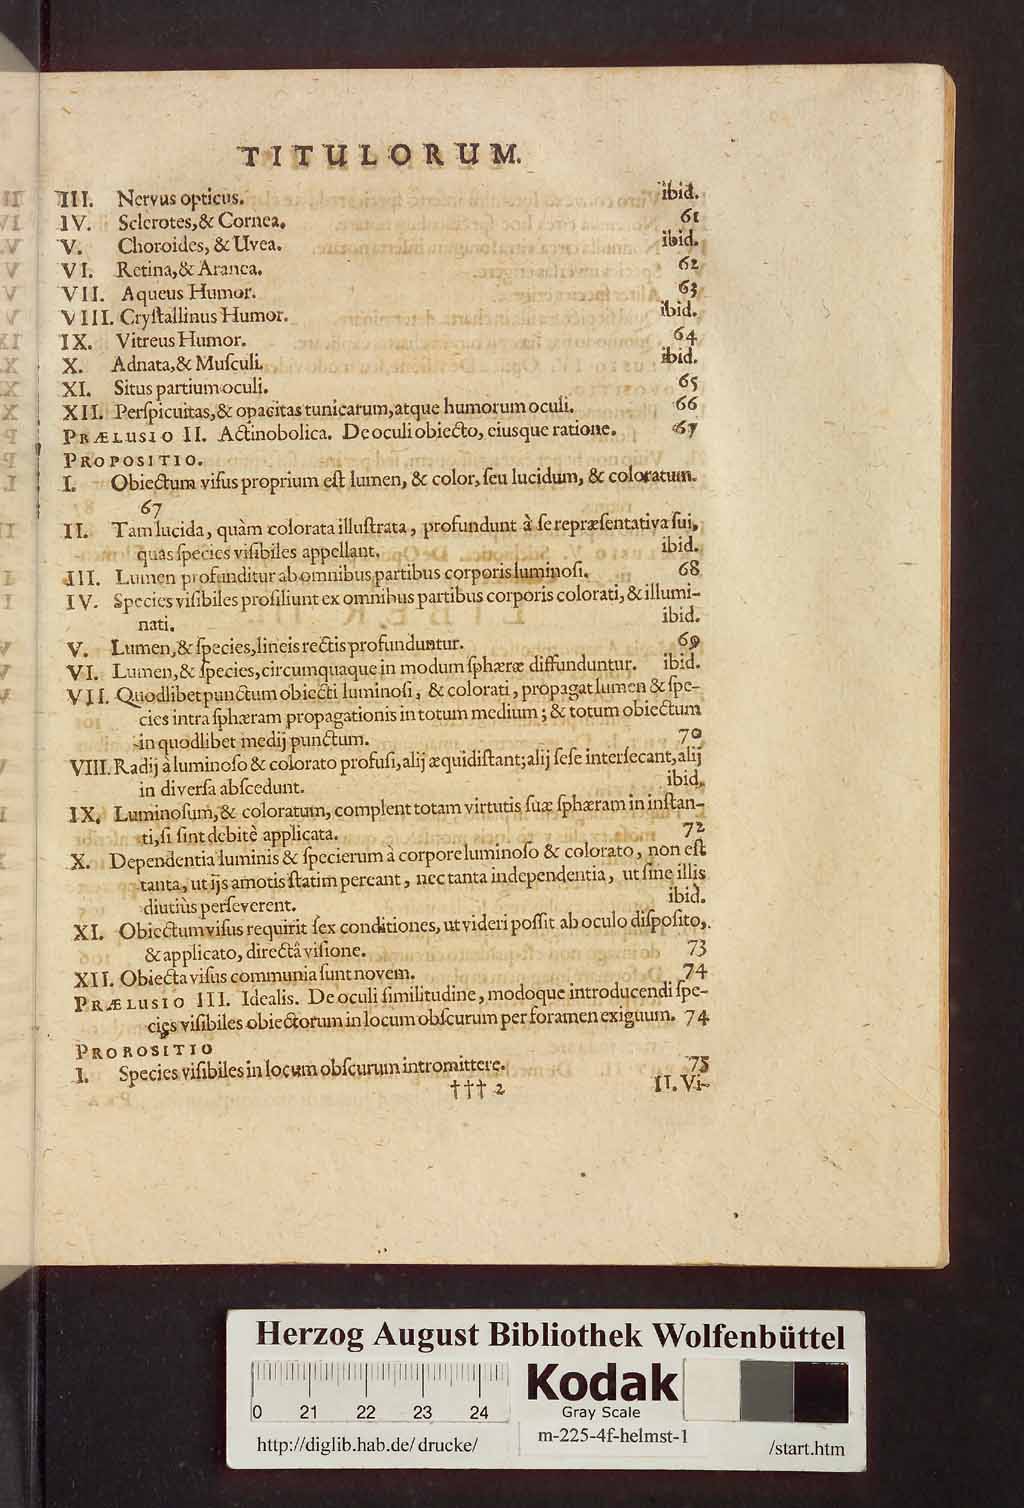 TITULORUM.
III. Nervus opticus. ibid.
IV. Sclerotes,& Cornea. 61
V. Choroides, & Uvea. ibid.
VI. Retina,& Aranea. 62
VII. Aqueus Humor. 63
VIII. Cryſtallinus Humor. ibid.
IX. Vitreus Humor. 64
X. Adnata,& Muſculi. ibid.
XI. Situs partium oculi. 65
XII. Perſpicuitas,& opacitas tunicarum,atque humorum oculi. 66
PRÆLUSIO II. Actinobolica. De oculi obiecto, eiusque ratione. 67
PROPOSITIO.
I. Obiectum viſus proprium eſt lumen, & color, ſeu lucidum, & coloratum.
67
II. Tam lucida, quàm colorata illuſtrata, profundunt à ſe repræſentativa ſui,
quas ſpecies viſibiles appellant. ibid.
III. Lumen profunditur ab omnibus partibus corporis luminoſi. 68
IV. Species viſibiles proſiliunt ex omnibus partibus corporis colorati, & illumi-
nati. ibid.
V. Lumen,& ſpecies,lineis rectis profunduntur. 69
VI. Lumen,& ſpecies,circumquaque in modum ſphæræ diffunduntur. ibid.
VII. Quodlibet punctum obiecti luminoſi, & colorati, propagat lumen & ſpe-
cies intra ſphæram propagationis in totum medium; & totum obiectum
in quodlibet medij punctum. 70
VIII. Radij à luminoſo & colorato profuſi,alij æquidiſtant;alij ſeſe interſecant,alij
in diverſa abſcedunt. ibid.
IX. Luminoſum,& coloratum, complent totam virtutis ſuæ ſphæram in inſtan-
ti,ſi ſint debitè applicata. 72
X. Dependentia luminis & ſpecierum à corpore luminoſo & colorato, non eſt
tanta, ut ijs amotis ſtatim pereant, nec tanta independentia, ut ſine illis
diutiùs perſeverent. ibid.
XI. Obiectum viſus requirit ſex conditiones, ut videri poſſit ab oculo diſpoſito,
& applicato, directâ viſione. 73
XII. Obiecta viſus communia ſunt novem. 74
PRÆLUSIO III. Idealis. De oculi ſimilitudine, modoque introducendi ſpe-
cies viſibiles obiectorum in locum obſcurum per foramen exiguum. 74
PROPOSITIO
I. Species viſibiles in locum obſcurum intromittere. 75
††† 2 II. Vi-
Herzog August Bibliothek Wolfenbüttel
0 21 22 23 24
Kodak
Gray Scale
m-225-4f-helmst-1
http://diglib.hab.de/drucke/ /start.htm